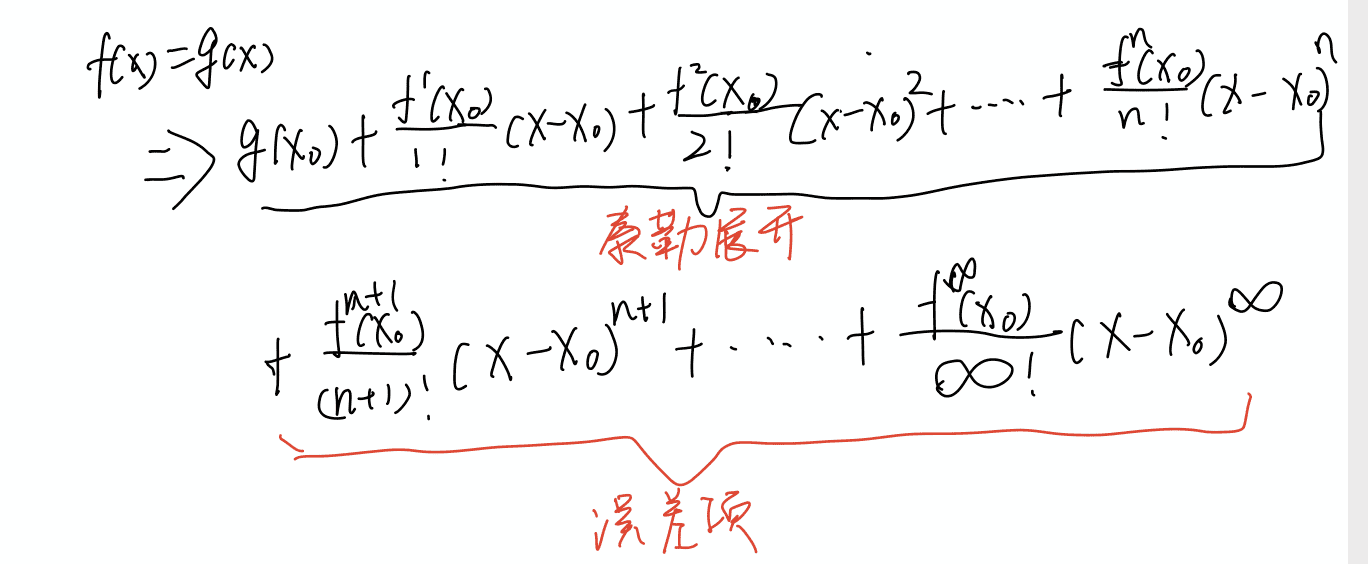 f(x)=g(x)
⇒ g(x₀) + f¹(x₀)/1! (x-x₀) + f²(x₀)/2! (x-x₀)² + ····· + fⁿ(x₀)/n! (x-x₀)ⁿ
泰勒展开
+ fⁿ⁺¹(x₀)/(n+1)! (x-x₀)ⁿ⁺¹ + ····· + f^∞(x₀)/∞! (x-x₀)^∞
误差项